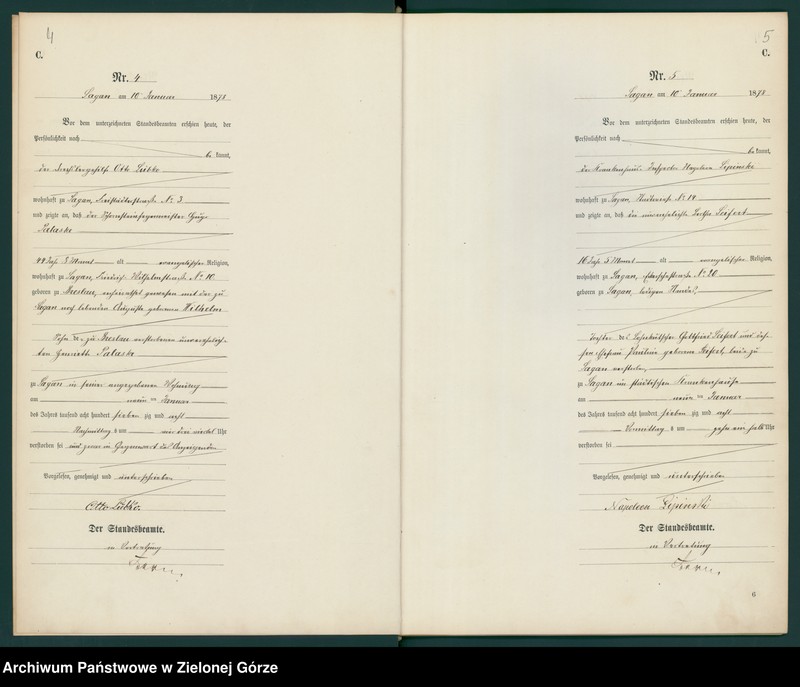 4
C.
Nr. 4
Sagan am 10 Januar 1878
Vor dem unterzeichneten Standesbeamten erschien heute, der
Persönlichkeit nach
be kannt,
der Otto Lübke
wohnhaft zu Sagan, No 3
und zeigte an, daß der Schornsteinfegermeister Hugo
44 Jahr 8 Monat alt evangelischer Religion,
wohnhaft zu Sagan, Friedrich Wilhelmstraße No 10
geboren zu Breslau, verheirathet gewesen mit der zu
Sagan noch lebenden Auguste geborenen Wilhelm
Sohn der zu Breslau verstorbenen unverehelich-
ten Henriette
zu Sagan in seiner angegebenen Wohnung
am neun ten Januar
des Jahres tausend acht hundert sieben zig und acht
Nachmittag s um drei viertel Uhr
verstorben sei und zwar in Gegenwart des Anzeigenden
Vorgelesen, genehmigt und unterschrieben
Otto Lübke.
Der Standesbeamte.
in Vertretung
5
C.
Nr. 5
Sagan am 10 Januar 1878
Vor dem unterzeichneten Standesbeamten erschien heute, der
Persönlichkeit nach
be kannt,
der Krankenhaus Inspector Napoleon Lipinski
wohnhaft zu Sagan, No 14
und zeigte an, daß die unverehelichte Bertha Seifert
16 Jahr 5 Monat alt evangelischer Religion,
wohnhaft zu Sagan, No 20
geboren zu Sagan, ledigen Standes,
Tochter des Gottfried Seifert und des-
sen Ehefrau Pauline geborene Seifert, beide zu
Sagan verstorben,
zu Sagan im städtischen Krankenhause
am neun ten Januar
des Jahres tausend acht hundert sieben zig und acht
Vormittag s um zehn ein halb Uhr
verstorben sei
Vorgelesen, genehmigt und unterschrieben
Napoleon Lipinski
Der Standesbeamte.
in Vertretung
6
Archiwum Państwowe w Zielonej Górze